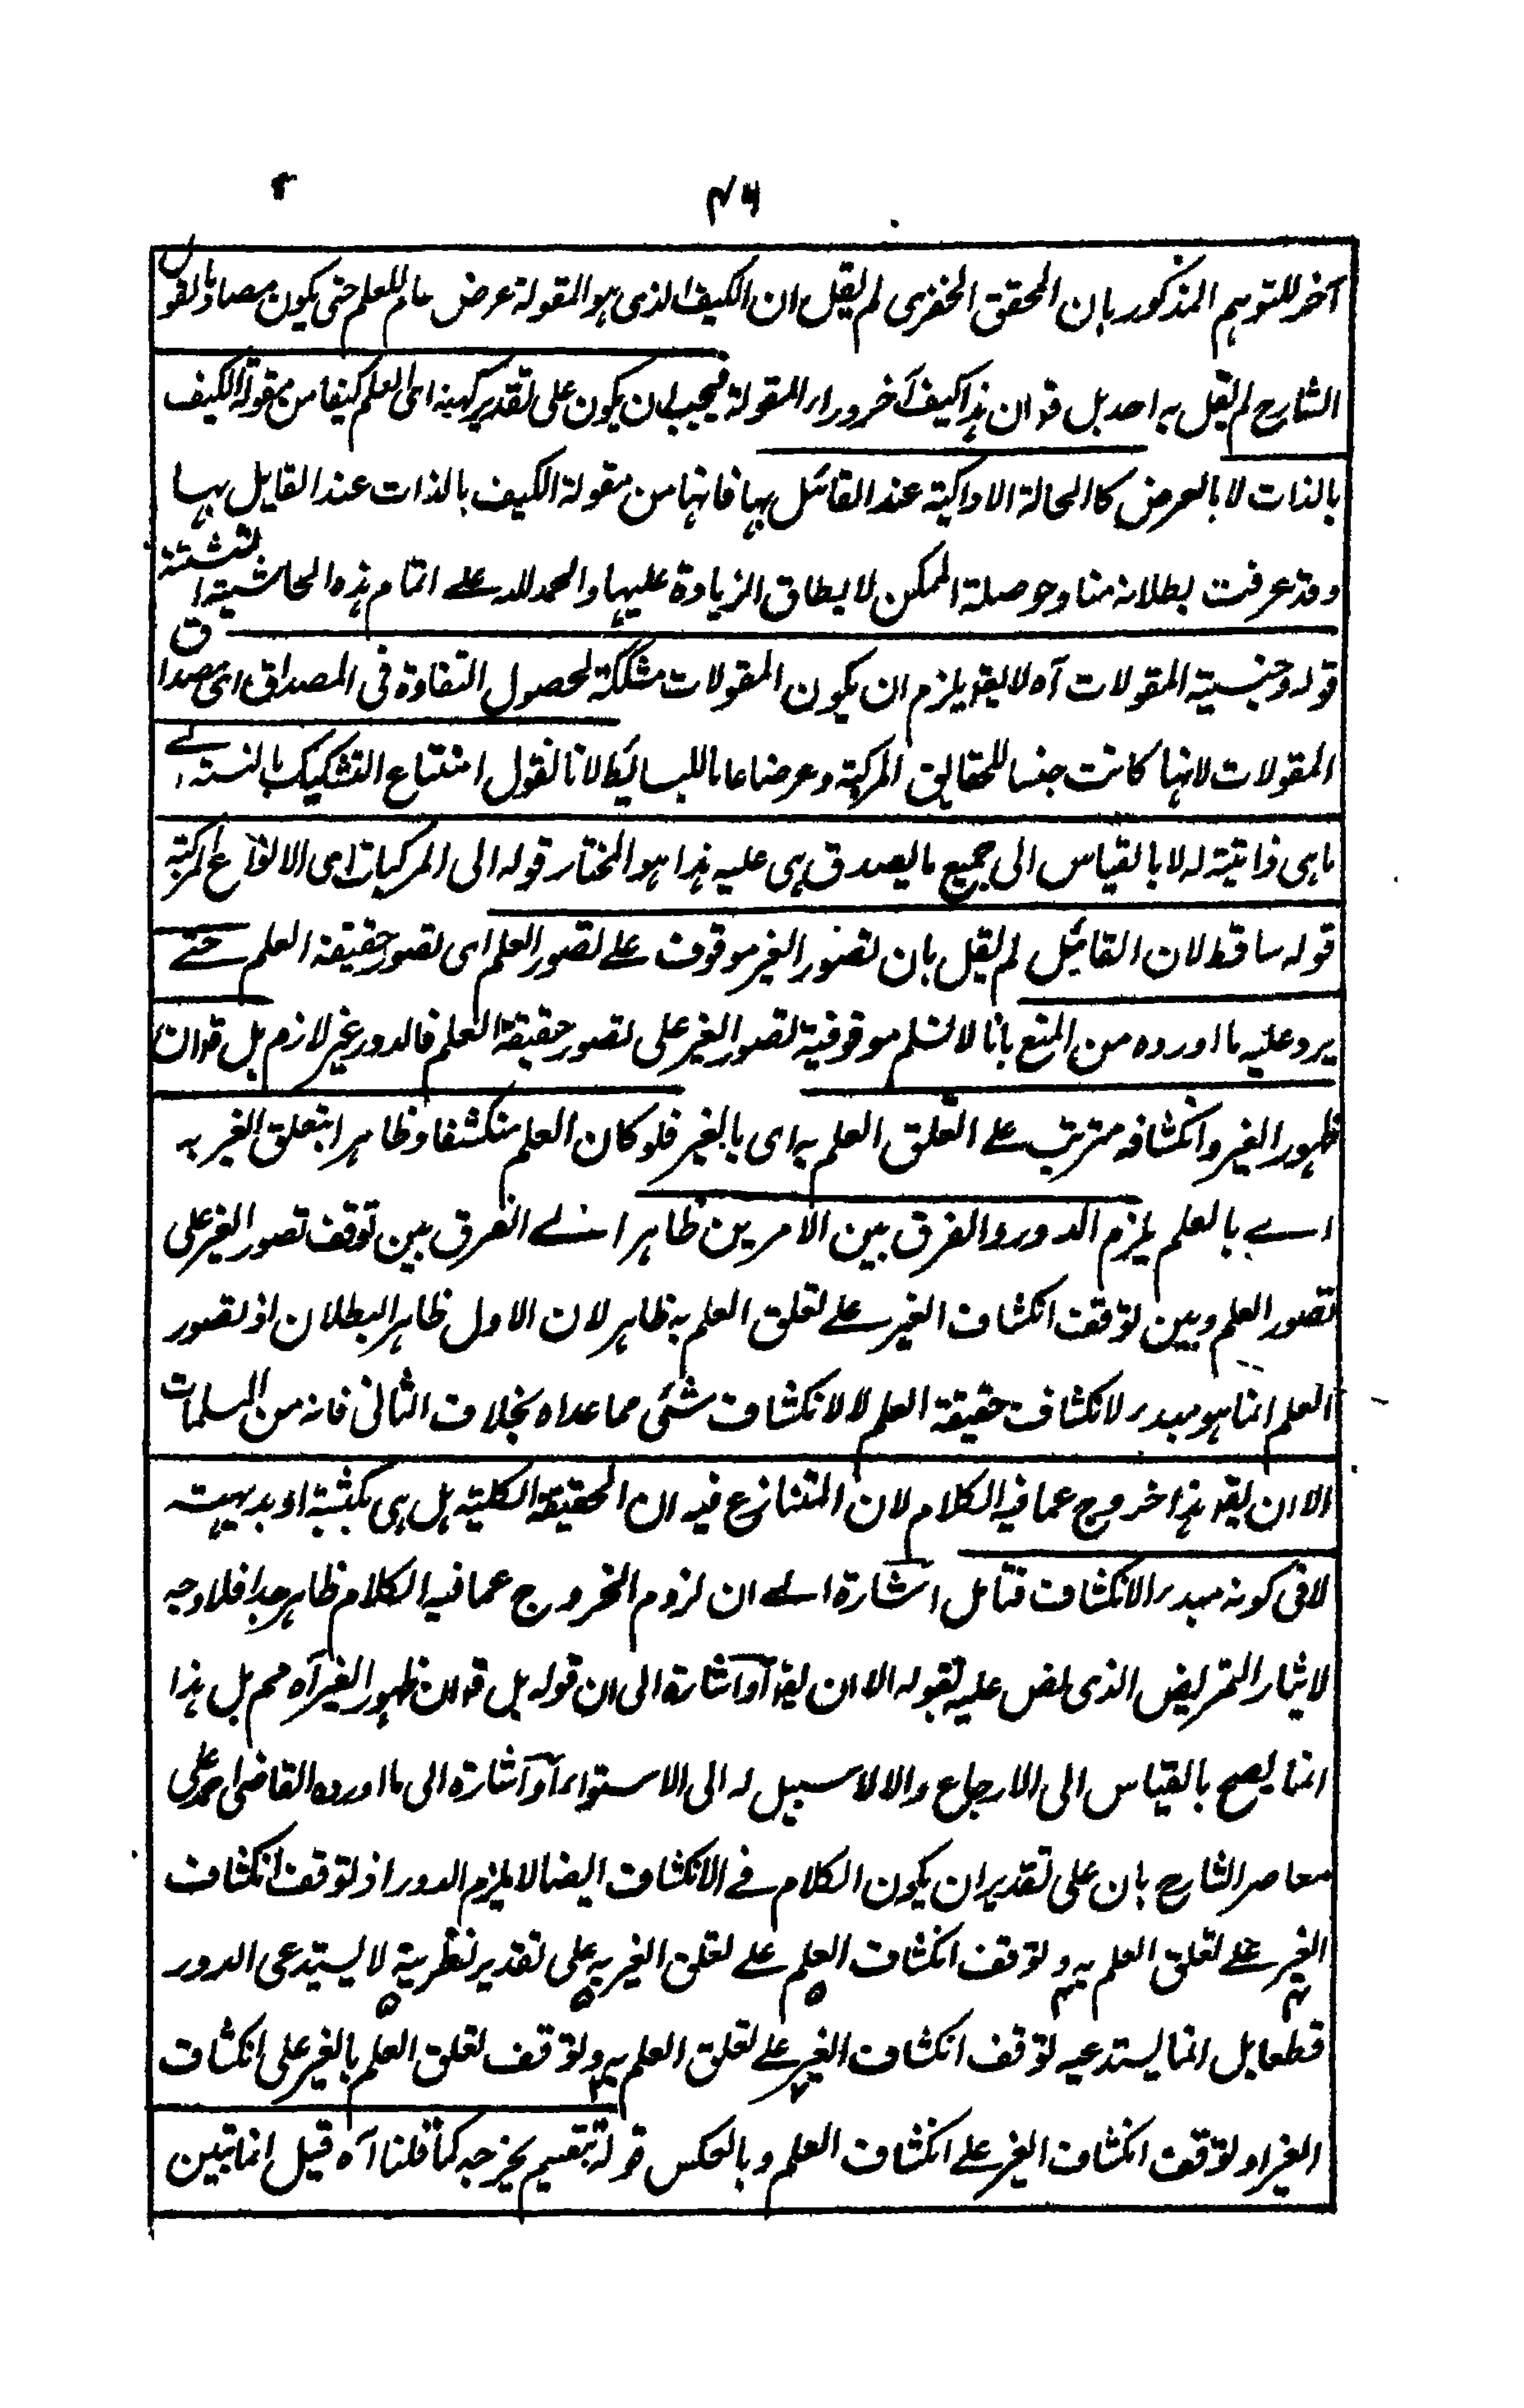 ۴۶
آخر للتوہم المذکور بان المحقق الخفری لم یقل ان الکیف الذی ہو المقولۃ عرض عام للعلم حتی یکون مصادما لقول
الشارح لم یقل بہ احد بل قد ان ہذا کیف آخر وراء المقولۃ فیجب ان یکون علی تقدیر کہنہ ای العلم کیفا من مقولۃ الکیف
بالذات لا بالعرض کالحالۃ الادراکیۃ عند القائل بہا فانہا من مقولۃ الکیف بالذات عند القایل بہا
وقد عرفت بطلانہ منا وحوصلۃ الممکن لا یطاق الزیادۃ علیہا والحمد للہ علے اتمام ہذہ الحاشیۃ
قولہ وجنسیۃ المقولات آہ لا یقہ یلزم ان یکون المقولات مشککۃ لحصول التفاوۃ فی المصداق ای مصداق
المقولات لانہا کانت جنسا للحقایق المرکبۃ وعرضا عاما للبسائط لانا نقول امتناع التشکیک بالنسبۃ الے
ماہی ذاتیۃ لہ لا بالقیاس الی جمیع ما یصدق ہی علیہ ہذا ہو المختار قولہ الی المرکبات ای الانواع المرکبۃ
قولہ ساقط لان القائل لم یقل بان تصور الغیر موقوف علے تصور العلم ای تصور حقیقۃ العلم حتے
یرد علیہ ما اوردہ من المنع بانا لا نسلم موقوفیۃ تصور الغیر علی تصور حقیقۃ العلم فالدور غیر لازم بل قد ان
ظہور الغیر وانکشافہ مترتب علے التعلق العلم بہ ای بالغیر فلو کان العلم منکشفا وظاہرا بتعلق الغیر بہ
اے بالعلم یلزم الدور والفرق بین الامرین ظاہر اے الفرق بین توقف تصور الغیر علی
تصور العلم وبین توقف انکشاف الغیر علے تعلق العلم بہ ظاہر لان الاول ظاہر البطلان اذ تصور
العلم انما ہو مبدء لانکشاف حقیقۃ العلم لا لانکشاف شئی مما عداہ بخلاف الثانی فانہ من المسلمات
الا ان یقہ ہذا خروج عما فیہ الکلام لان المتنازع فیہ ان الحقیقۃ الکلیۃ ہل ہی کسبیۃ او بدیہیۃ
لا فی کونہ مبدء الانکشاف فتامل اشارۃ الے ان لزوم الخروج عما فیہ الکلام ظاہر جدا فلا وجہ
لایثار التمریض الذی نص علیہ بقولہ الا ان یقہ او اشارۃ الی ان قولہ بل قد ان ظہور الغیر آہ مم بل ہذا
انما یصح بالقیاس الی الارجاع والا لا سبیل لہ الی الاستواء او اشارۃ الی ما اوردہ القاضی احمد علی
معاصر الشارح بان علی تقدیر ان یکون الکلام فے الانکشاف ایضا لا یلزم الدور اذ توقف انکشاف
الغیر علے تعلق العلم بہ وتوقف انکشاف العلم علے تعلق الغیر بہ علی تقدیر نظریۃ لا یستدعی الدور
قطعا بل انما یستدعیہ توقف انکشاف الغیر علے تعلق العلم بہ وتوقف تعلق العلم بالغیر علی انکشاف
الغیر او توقف انکشاف الغیر علے انکشاف العلم وبالعکس قولہ تقسیم یخرجہ کما قلنا آہ قیل انما تبین